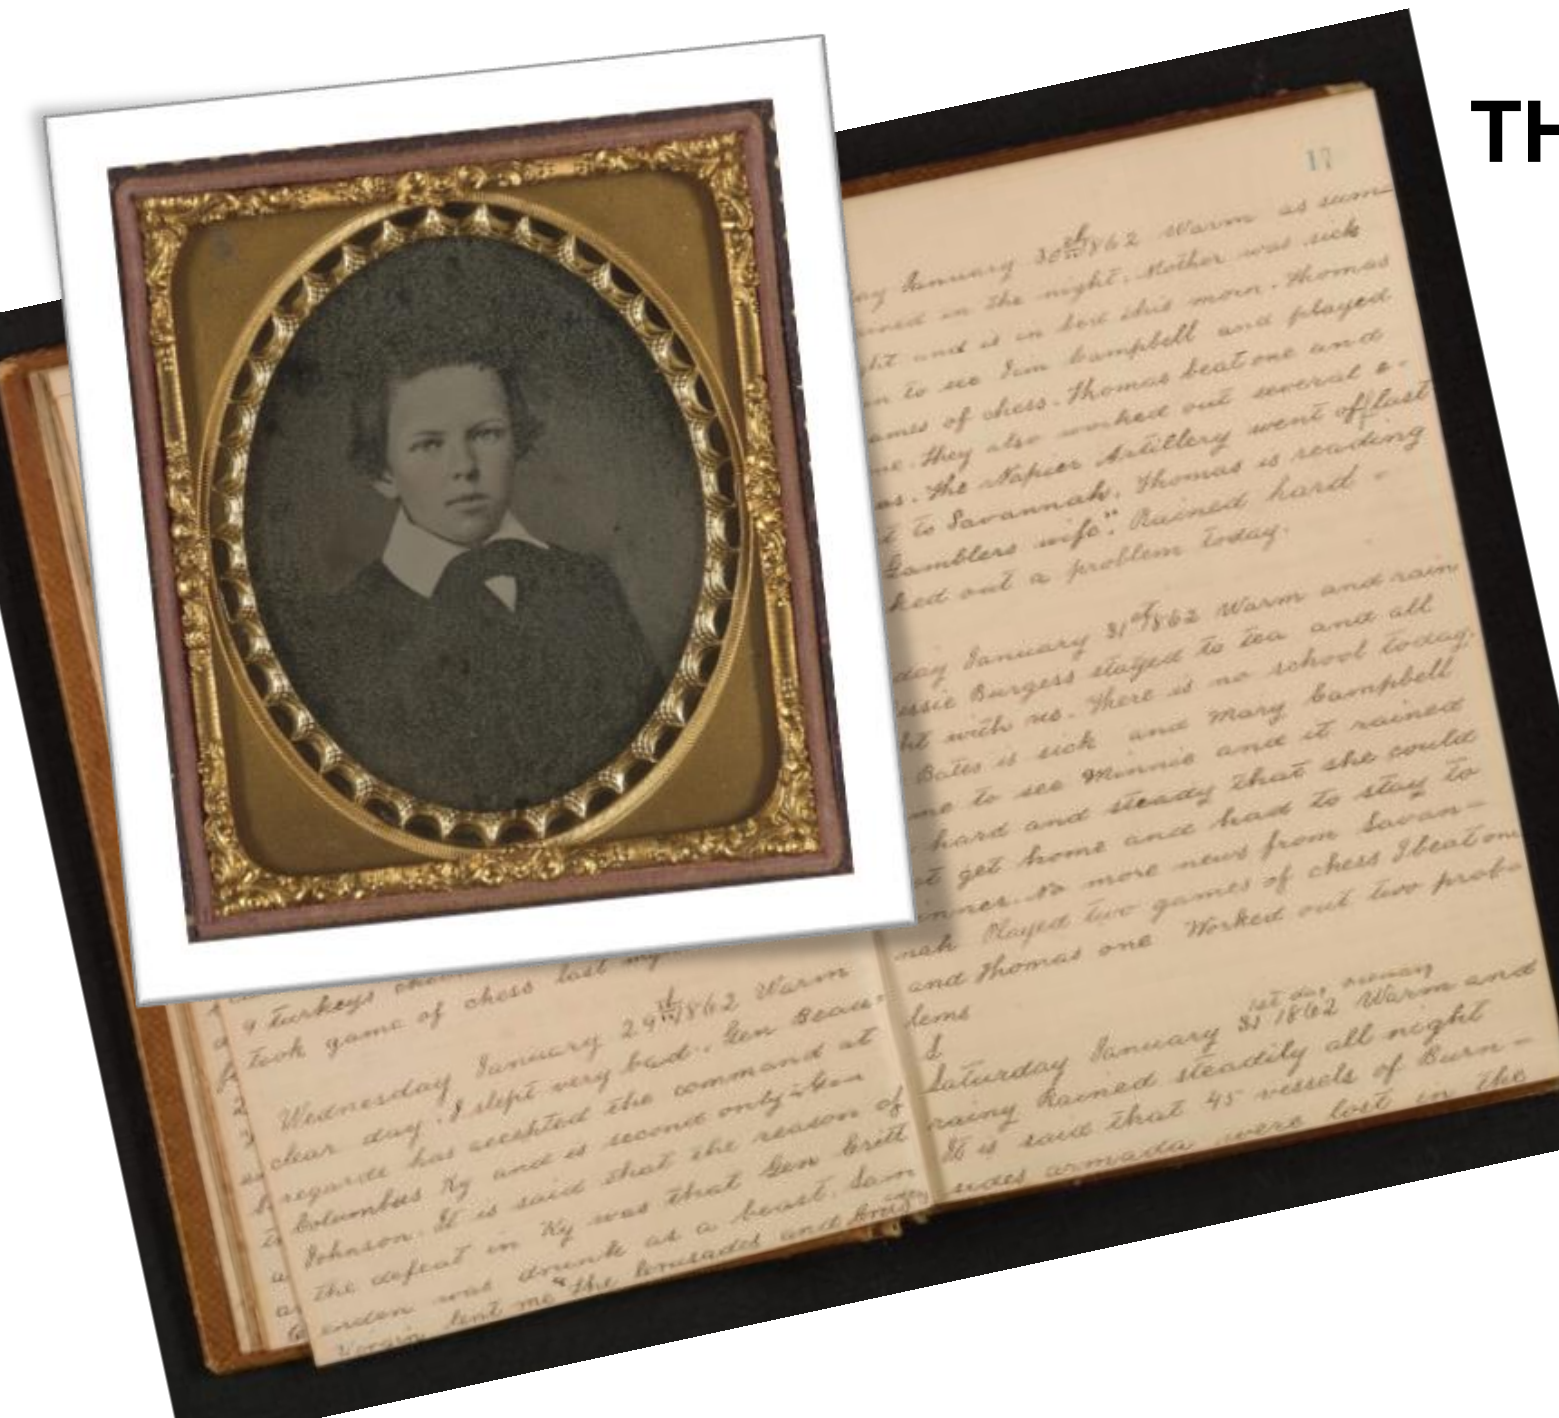 TH
17
January 30th 1862 Warm as sum-
in the night. Mother was sick
and is in bed this morn. Thomas
to see Jim Campbell and played
of chess. Thomas beat one and
They also worked out several e-
The Napier Artillery went off last
to Savannah. Thomas is reading
Gamblers wife". Rained hard -
out a problem today.
January 31st 1862 Warm and rain
Burgess stayed to tea and all
with us. There is no school today.
Bates is sick and Mary Campbell
to see Minnie and it rained
hard and steady that she could
get home and had to stay to
No more news from Savan-
nah Played two games of chess I beat one
and Thomas one Worked out two prob-
lems
1st day
Saturday January 31 1862 Warm and
rainy Rained steadily all night
It is said that 45 vessels of Burn-
sides armada were lost in the
9 turkeys
took game of chess last
Wednesday January 29th 1862 Warm
clear day. I slept very bad. Gen Beau-
regarde has accepted the command at
Columbus Ky and is second only to Gen
Johnson. It is said that the reason of
the defeat in Ky was that Gen Critt
enden was drunk as a beast. Sam
lent me "The Crusades and